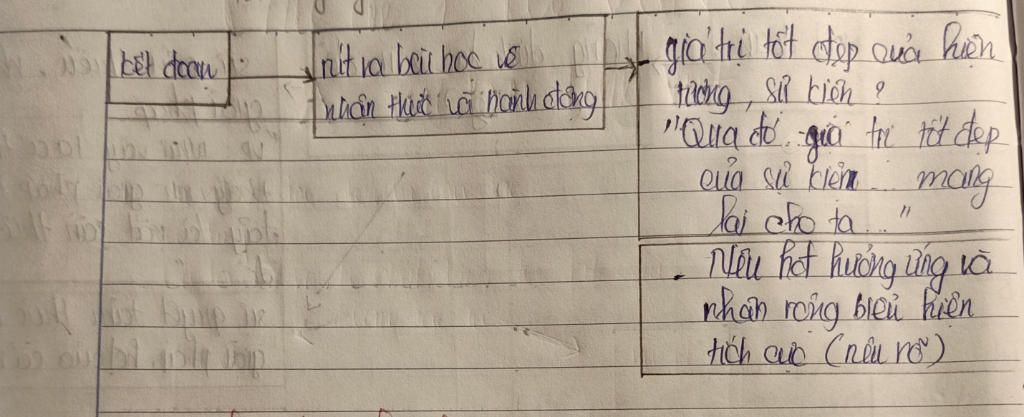 kết đoạn
rút ra bài học về
nhận thức và hành động
- giá trị tốt đẹp của hiện
tượng, sự kiện ?
"Qua đó, giá trị tốt đẹp
của sự kiện ... mang
lại cho ta ... "
- Nêu hđ hưởng ứng và
nhân rộng biểu hiện
tích cực (nêu rõ)